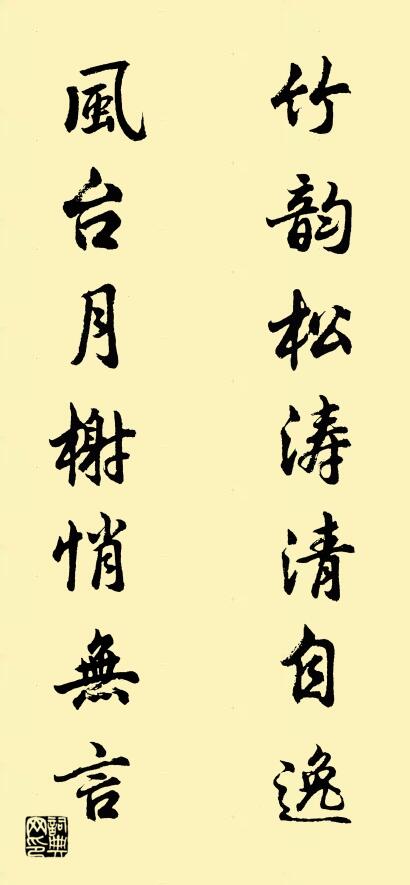 竹韵松涛清自逸
風台月榭悄無言
詞典网印